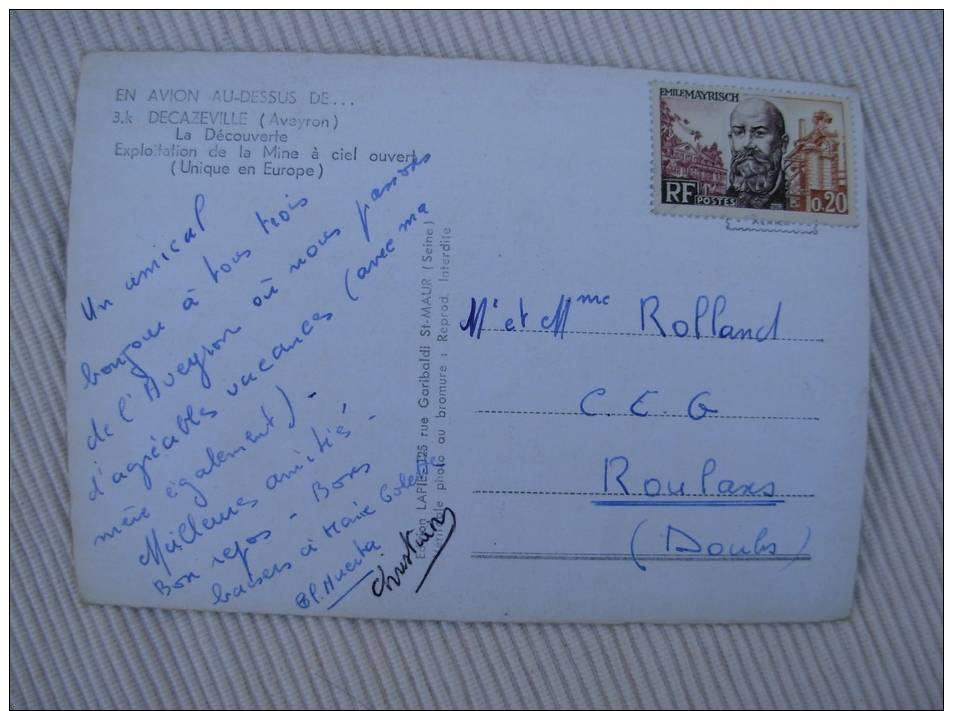 EN AVION AU-DESSUS DE...
3.k DECAZEVILLE (Aveyron)
La Découverte
Exploitation de la Mine à ciel ouvert
(Unique en Europe)
Un amical
bonjour à tous trois
de l'Aveyron où nous passons
d'agréables vacances (avec ma
mère également) -
Meilleures amitiés -
Bon repos - Bons
baisers à Marie
Christian
Edition LAPIE, 125 rue Garibaldi St-MAUR (Seine)
Véritable photo au bromure : Reprod. Interdite
EMILE MAYRISCH
RF
POSTES
0.20
Mr et Mme Rolland
C. E. G
Roulans
(Doubs)